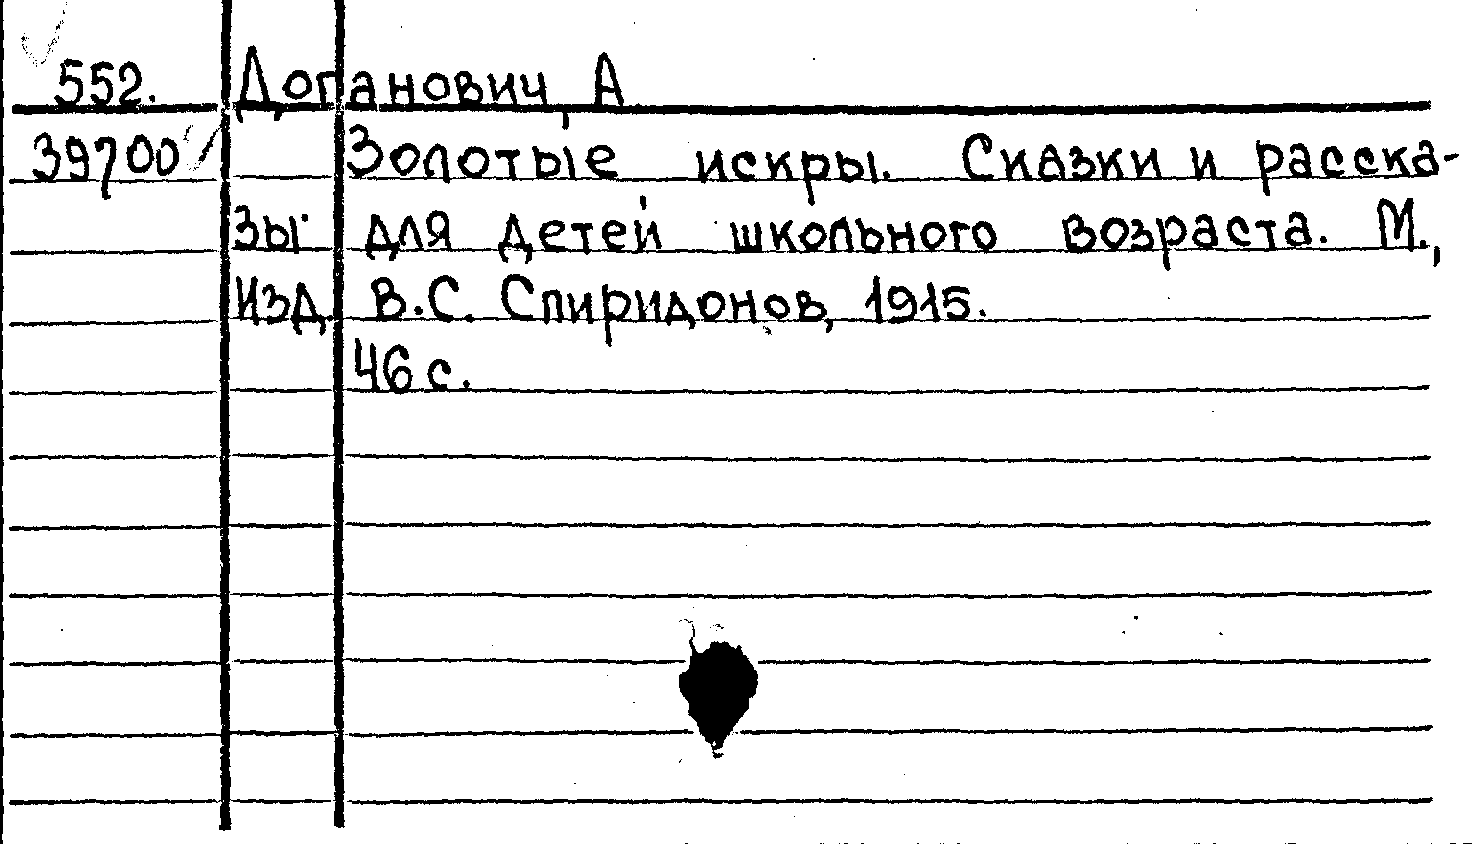 552. Доганович, А
39700 Золотые искры. Сказки и расска-
зы для детей школьного возраста. М.,
Изд. В.С. Спиридонов, 1915.
46 с.